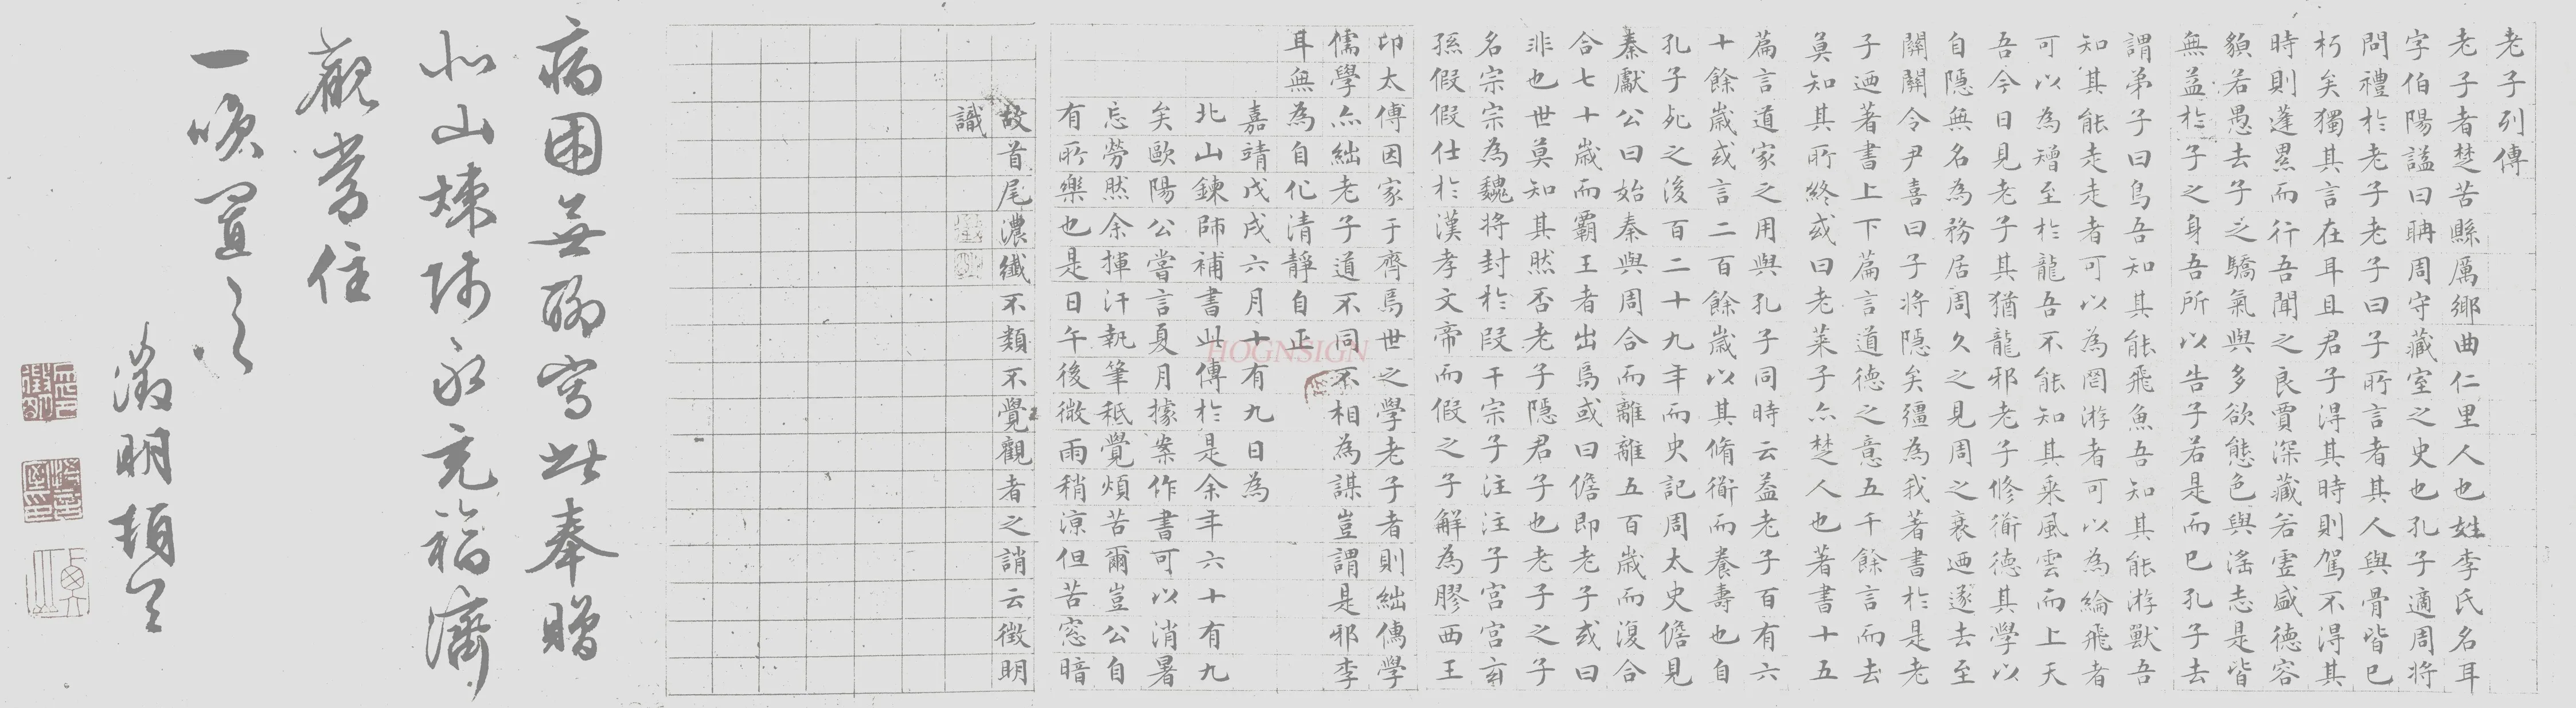 老子列傳
老子者楚苦縣厲鄉曲仁里人也姓李氏名耳
字伯陽謚曰聃周守藏室之史也孔子適周將
問禮於老子老子曰子所言者其人與骨皆已
朽矣獨其言在耳且君子得其時則駕不得其
時則蓬累而行吾聞之良賈深藏若虛盛德容
貌若愚去子之驕氣與多欲態色與淫志是皆
無益於子之身吾所以告子若是而已孔子去
謂弟子曰鳥吾知其能飛魚吾知其能游獸吾
知其能走走者可以為罔游者可以為綸飛者
可以為矰至於龍吾不能知其乘風雲而上天
吾今日見老子其猶龍邪老子修道德其學以
自隱無名為務居周久之見周之衰迺遂去至
關關令尹喜曰子將隱矣彊為我著書於是老
子迺著書上下篇言道德之意五千餘言而去
莫知其所終或曰老萊子亦楚人也著書十五
篇言道家之用與孔子同時云蓋老子百有六
十餘歲或言二百餘歲以其脩道而養壽也自
孔子死之後百二十九年而史記周太史儋見
秦獻公曰始秦與周合而離離五百歲而復合
合七十歲而霸王者出焉或曰儋即老子或曰
非也世莫知其然否老子隱君子也老子之子
名宗宗為魏將封於段干宗子注注子宮宮玄
孫假假仕於漢孝文帝而假之子解為膠西王
卬太傅因家于齊焉世之學老子者則絀儒學
儒學亦絀老子道不同不相為謀豈謂是邪李
耳無為自化清靜自正
嘉靖戊戌六月十有九日為
北山鍊師補書此傳於是余年六十有九
矣歐陽公嘗言夏月據案作書可以消暑
忘勞然余揮汗執筆秪覺煩苦爾豈公自
有所樂也是日午後微雨稍涼但苦窓暗
故首尾濃纖不類不覺觀者之誚云徵明
識
病困無聊寫此奉贈
北山煉師永充福濟
觀常住
一咲置之
徵明頓首
HOGNSIGN